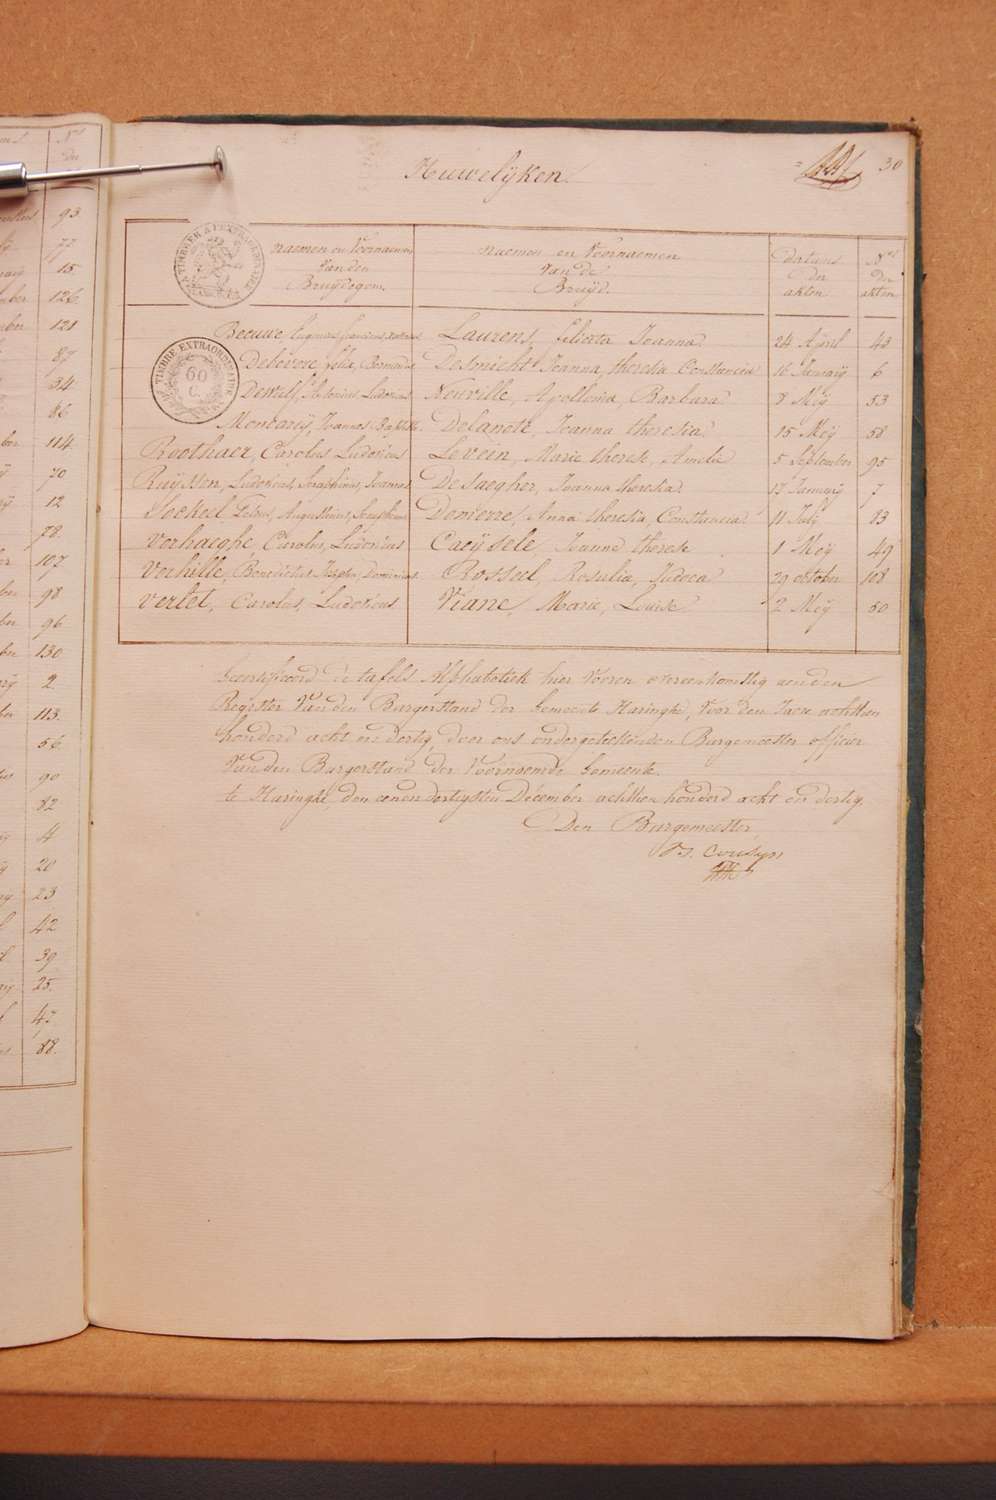 Huwelijken.
30
Naemen en Voornaemen Van den Bruijdegom.
Naemen en Voornaemen Van de Bruijd.
datums der akten
Nos der akten
TIMBRE EXTRAORDINAIRE
60 C.
Beeuwe, Laurens, felicita Joanna 24 April 43
Debevere, felix, Bernardus Desmicht Joanna, theresia Constancia 16 Januarij 6
Dewulf, Antonius, Ludovicus Neuville, Apollonia, Barbara 8 Meij 53
Moncareij, Joannes Baptiste Delanote, Joanna theresia 15 Meij 58
Roothaer, Carolus Ludovicus Levein, Marie therese, Amela 5 September 95
Ruijssen, Ludovicus, Seraphinus, Joannes Desaegher, Joanna theresia 17 Januarij 7
Sockeel, Petrus, Augustinus, Seraphinus Demerre, Anna theresia, Constancia 11 July 83
Verhaeghe, Carolus, Ludovicus Caeijsele, Joanna therese 1 Meij 49
Verhille, Benedictus Joseph, Dominicus Rosseel, Rosalia, Judoca 29 october 108
Verlet, Carolus, Ludovicus Viane, Marie, Louise 2 Meij 50
Gecertifieerd de tafels Alphabetiek hier Vooren overeenkomstig aen den
Register Van den Burgerstand der Gemeente Haringhe, Voor den Jaere achttien
honderd acht en dertig, door ons ondergeteekenden Burgemeester officier
Van den Burgerstand der Voornoemde Gemeente.
te Haringhe den eenendertigsten Décember achttien honderd acht en dertig
Den Burgemeester,
Nos
der
93
77
15
126
121
87
34
86
114
70
12
78
107
98
96
130
2
113
56
90
82
4
20
23
42
39
25
47
88